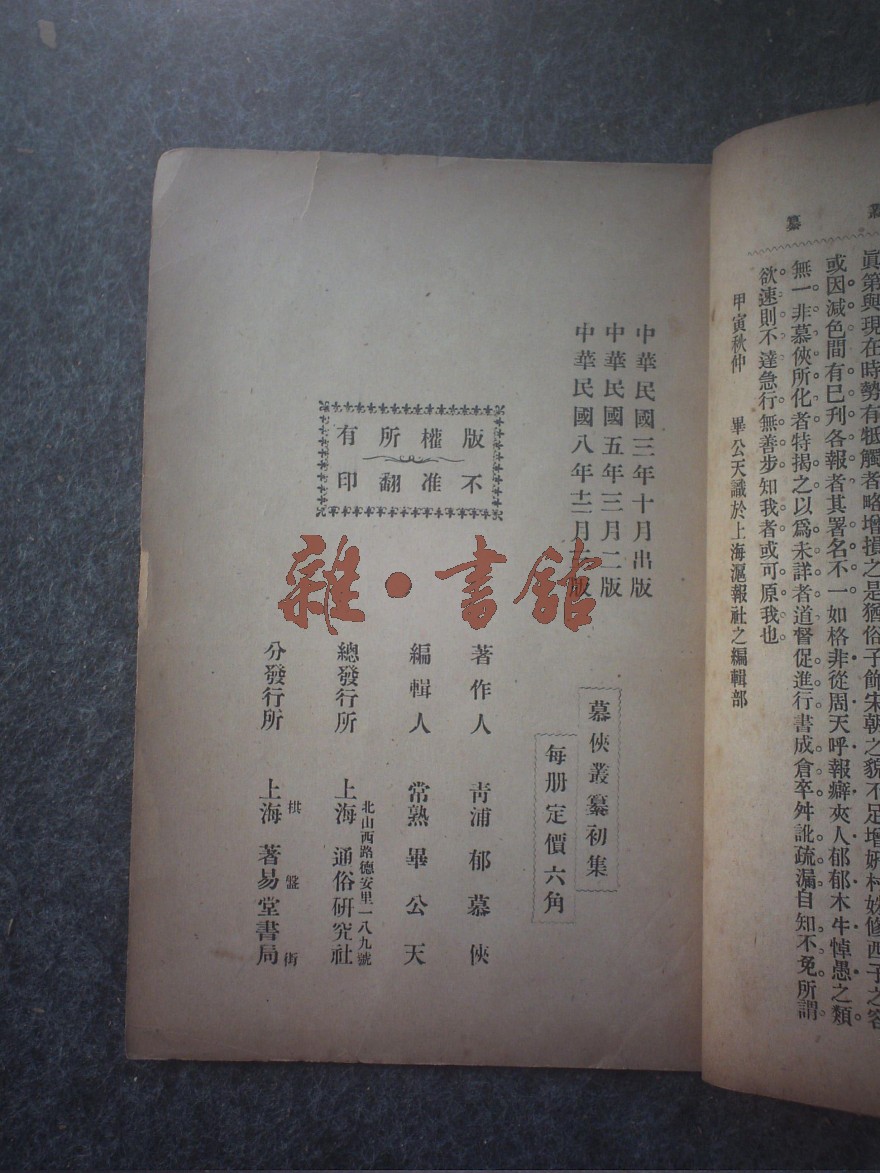 纂
眞第與現在時勢有牴觸者略增損之是猶俗子飾宋朝之貌不足增妍村姝修西子之容
或因減色間有已刊各報者其署名不一如格非從周天呼報癖夾人郁郁木牛悼愚之類
無一非慕俠所化者特揭之以爲未詳者道督促進行書成倉卒舛訛疏漏自知不免所謂
欲速則不達急行無善步知我者或可原我也
甲寅秋仲 畢公天識於上海滬報社之編輯部
中華民國三年十月出版
中華民國五年三月二版
中華民國八年十二月三版
版權所有
不准翻印
慕俠叢纂初集
每册定價六角
著作人 靑浦郁慕俠
編輯人 常熟畢公天
總發行所 北山西路德安里一八九號 上海通俗研究社
分發行所 棋盤街 上海著易堂書局
雜·書館